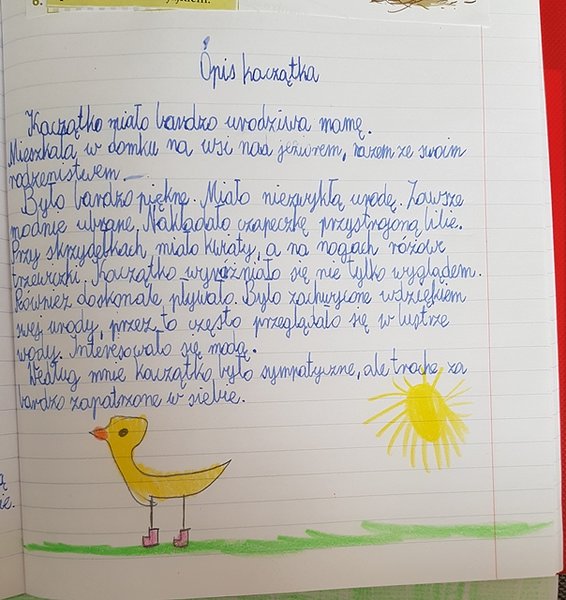 6.
Opis kaczątka
Kaczątko miało bardzo urodziwa mamę.
Mieszkała w domku na wsi nad jeziorem, razem ze swoim
rodzeństwem
Było bardzo piękne. Miało niezwykłą urodę. Zawsze
modnie ubrane. Nakładało czapeczkę przystrojoną lilie.
Przy skrzydełkach miało kwiaty, a na nogach różowe
trzewiczki. Kaczątko wyróżniało się nie tylko wyglądem.
Również doskonale pływało. Było zachwycone wdziękiem
swej urody, przez to często przeglądało się w lustrze
wody. Interesowało się modą.
Według mnie kaczątko było sympatyczne, ale trochę za
bardzo zapatrzone w siebie.